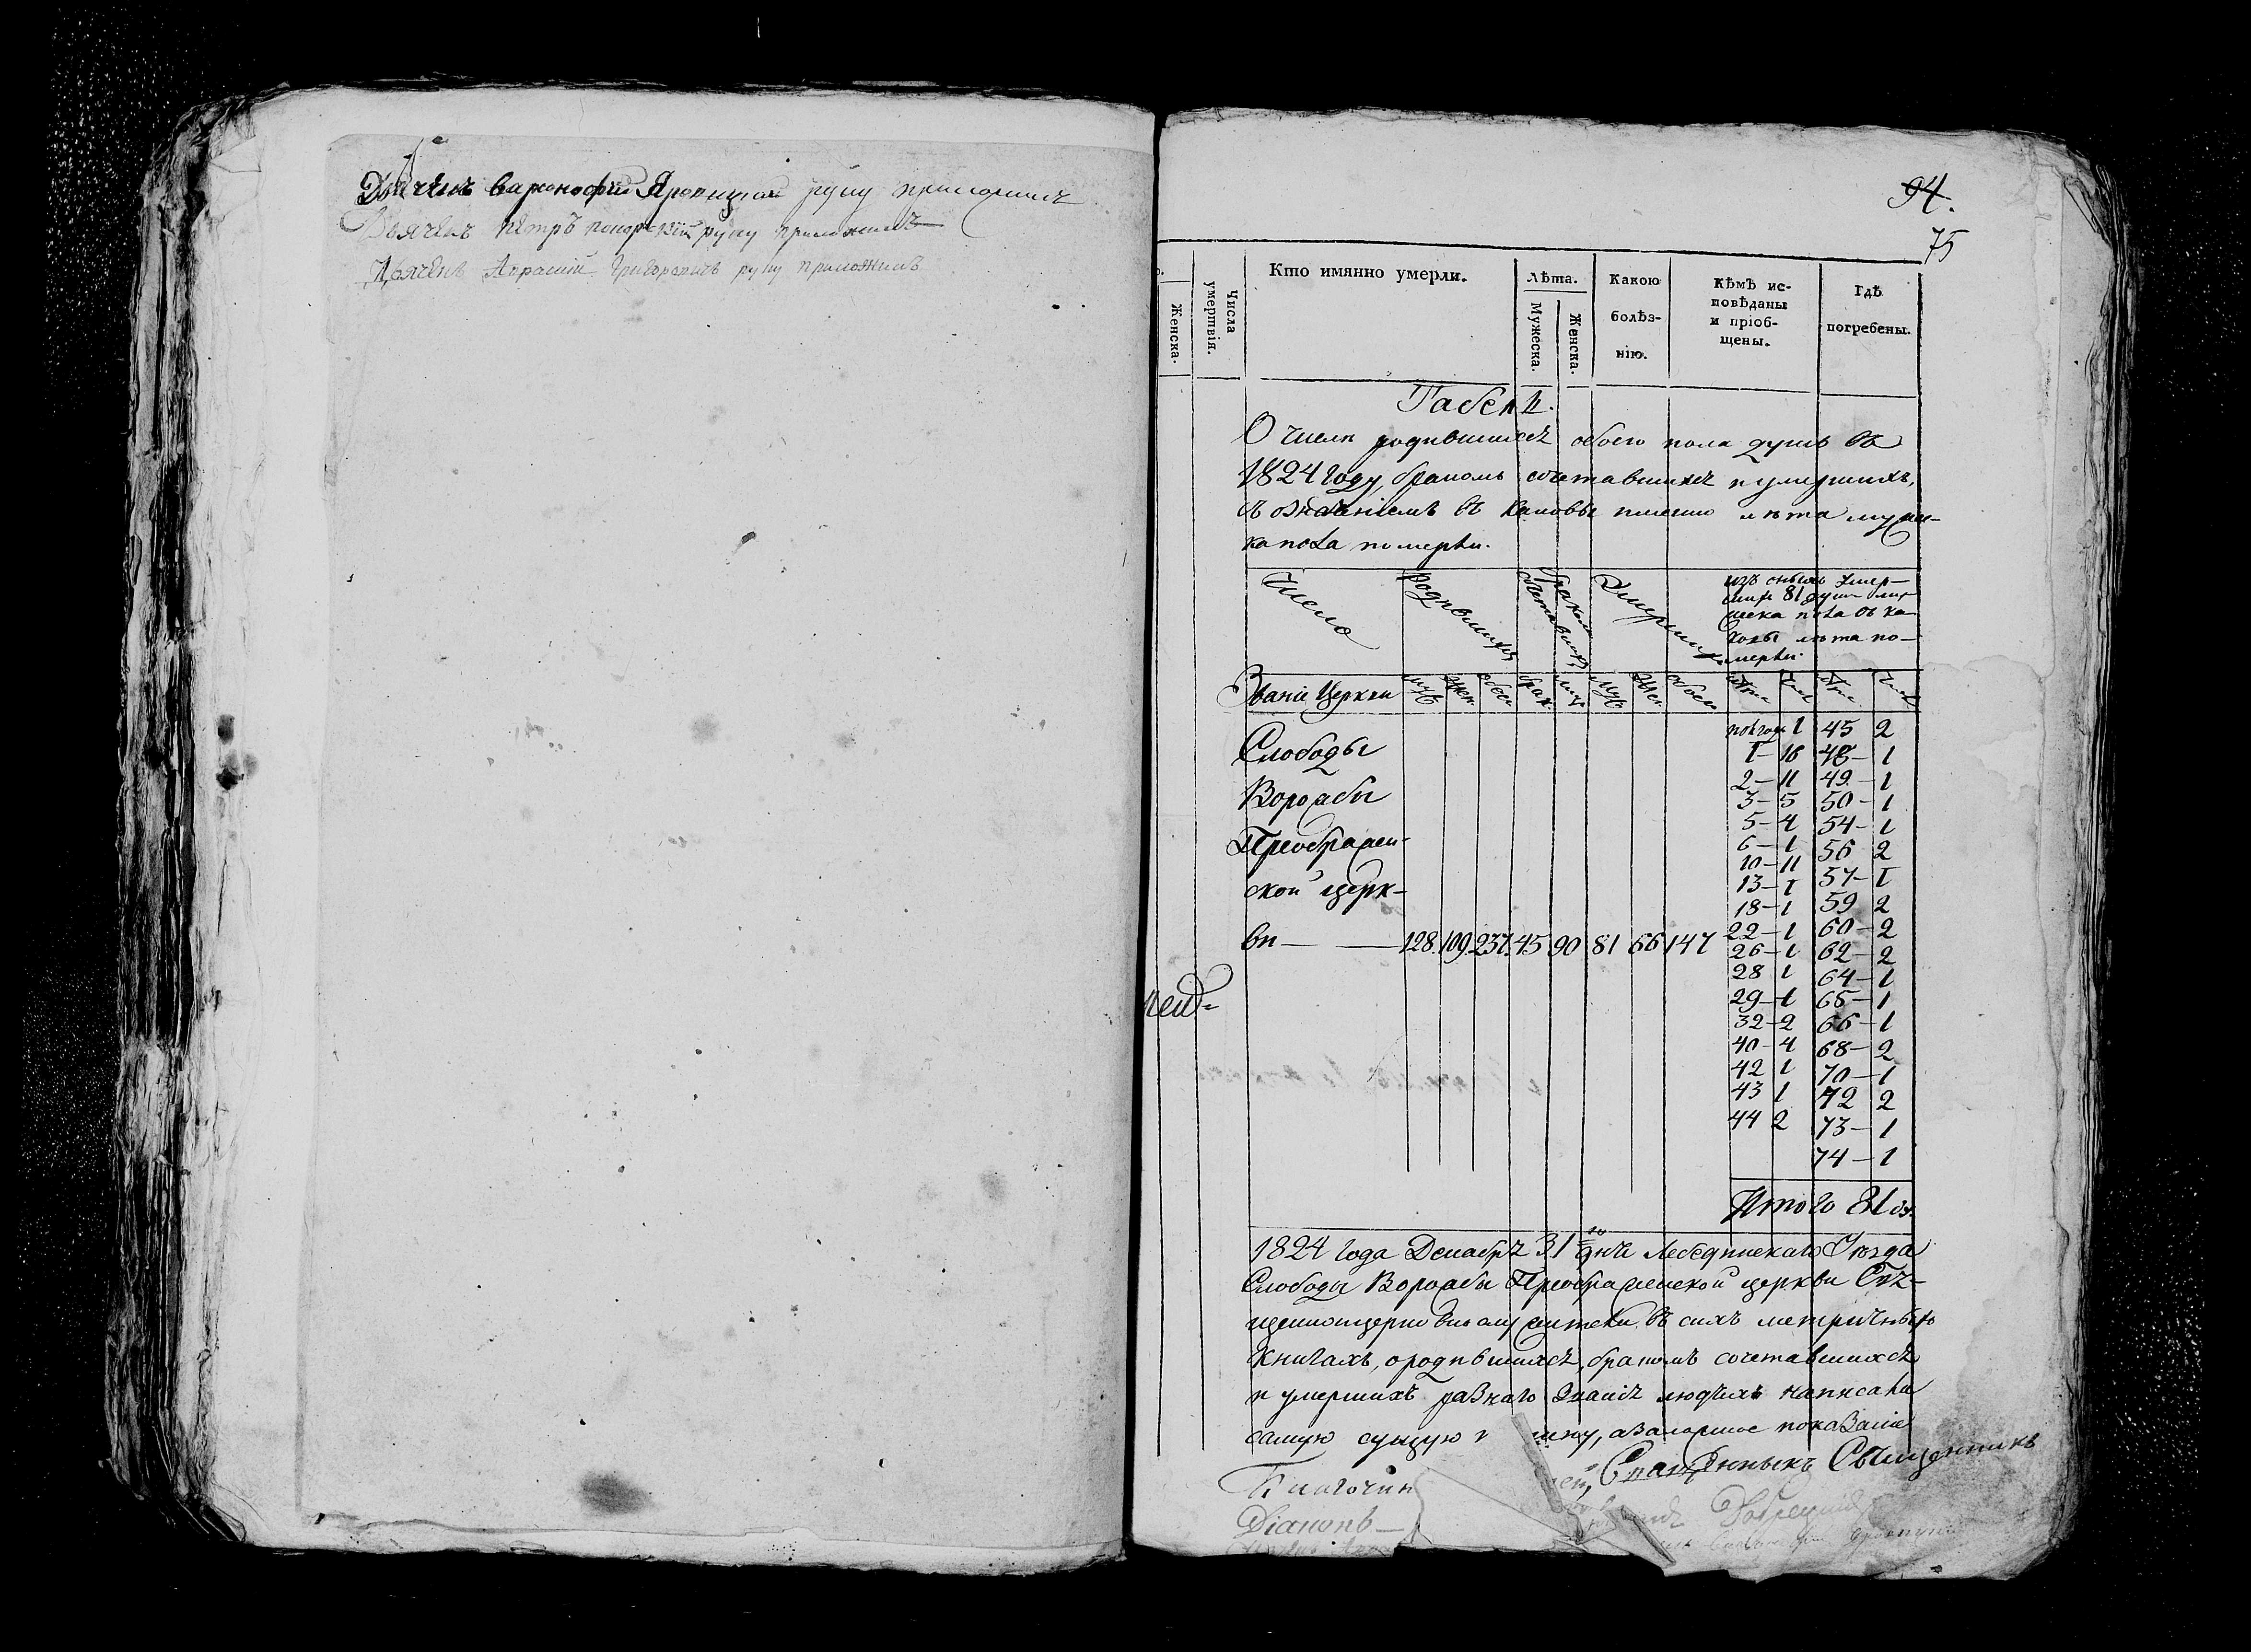 Дьячекъ варфоофей Яропицкой руку приложилъ
Дьячекъ Петръ понорскій руку приложилъ
Дьячекъ Аѳанасій Григоровичъ руку приложилъ
94.
75
Женска.
Числа умертвія.
Кто имянно умерли.
Лѣта.
Мужеска.
Женска.
Какою болѣз-нію.
Кѣмъ ис-
повѣданы
и пріоб-
щены.
Гдѣ
погребены.
Табель.
О числѣ родившихся обоего пола душъ въ
1824 году, бракомъ сочетавшихся и умершихъ,
съ означеніемъ въ каковы именно лѣта мужес-
ка пола померли.
Число
Родившихся
бракомъ сочетавшихся
Умершихъ
изъ оныхъ умер-
шихъ 81 душъ му-
жеска пола въ ка-
ковы лѣта по-
мерли.
Званіе Церкви
муж жен обоего брак лиц муж жен обоего лѣта числ лѣта числ
Слободы
Ворожбы
Преображен-
ской церк-
ви — — 128. 109. 237. 45 90 81 66 147
полгода 1 45 2
1 — 16 48 — 1
2 — 11 49 — 1
3 — 5 50 — 1
5 — 4 54 — 1
6 — 1 56 2
10 — 11 57 — 1
13 — 1 59 2
18 — 1 60 — 2
22 — 1 62 — 2
26 — 1 64 — 1
28 1 65 — 1
29 — 1 66 — 1
32 — 2 68 — 2
40 — 4 70 — 1
42 1 72 2
43 1 73 — 1
44 2 74 — 1
Итого 81 ду.
1824 года Декабря 31го дня Лебединскаго Уѣзда
Слободы Ворожбы Преображенской церкви Свя-
щенноцерковнослужители въ сихъ метричныхъ
Книгахъ, о родившихся, бракомъ сочетавшихся
и умершихъ разнаго званія людяхъ написали
самую сущую а за ложное показаніе
Благочин Священникъ
Діаконъ —